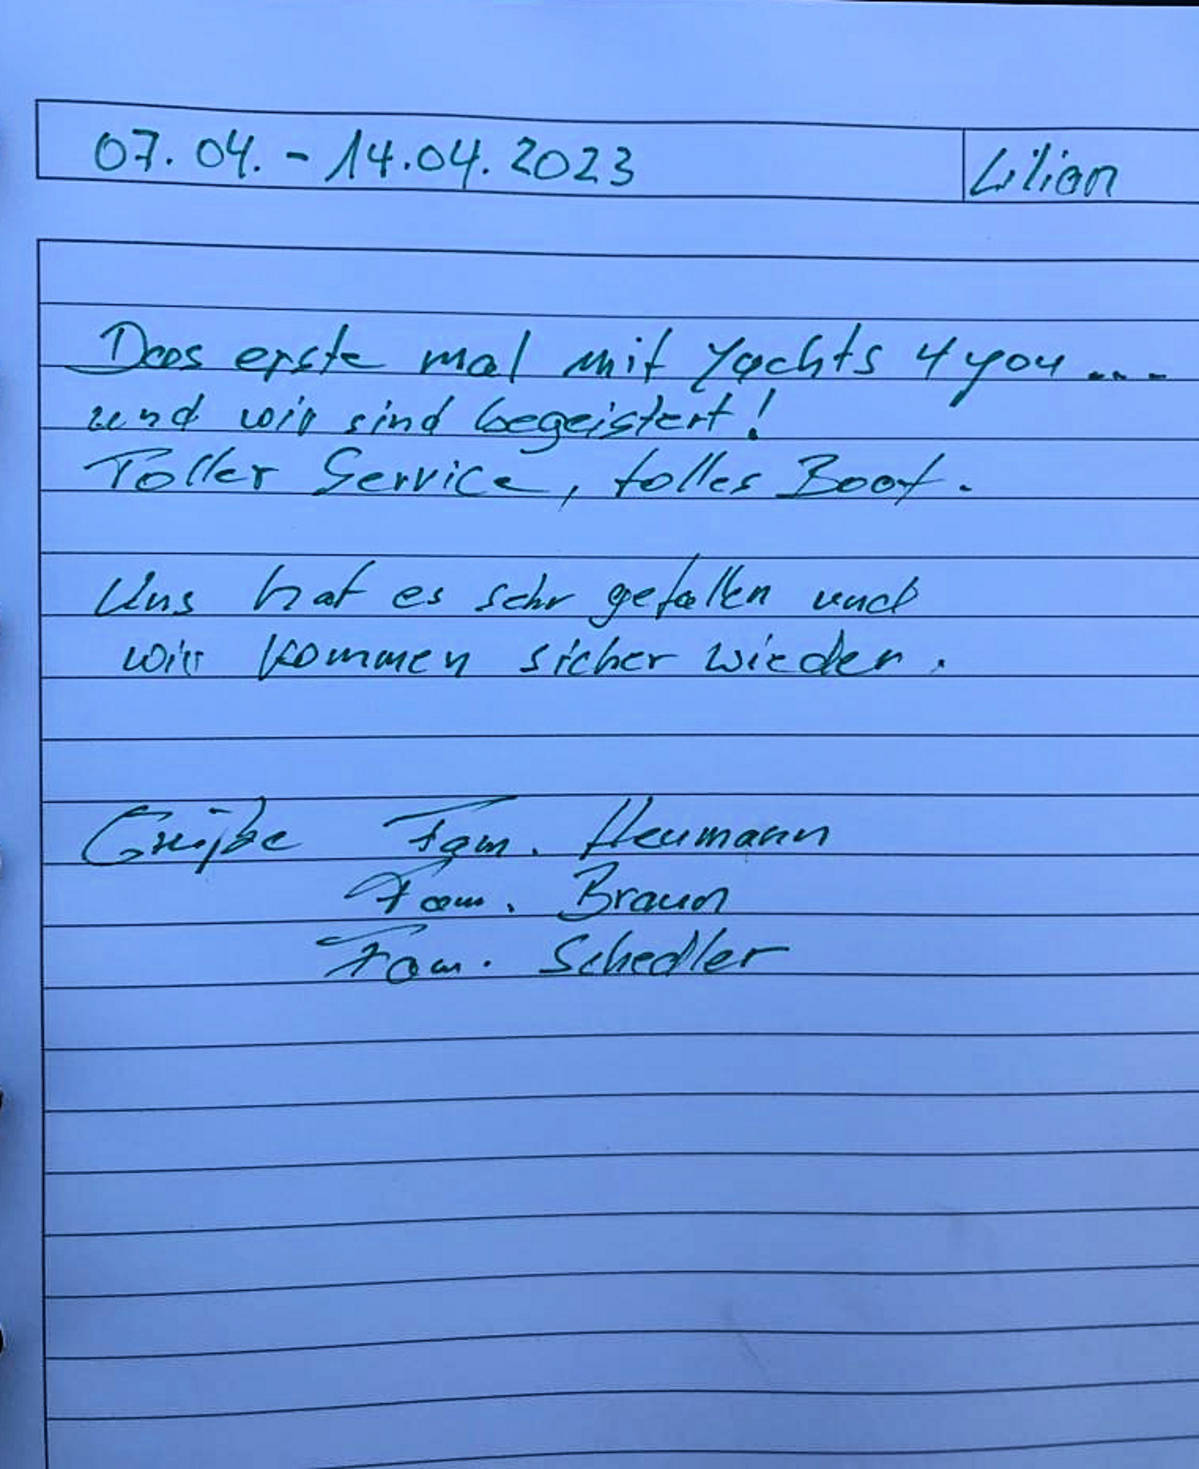 07.04. - 14.04.2023 Lilian
Das erste mal mit Yachts 4 you...
und wir sind begeistert!
Toller Service, tolles Boot.
Uns hat es sehr gefallen und
wir kommen sicher wieder.
Grüße Fam. Heumann
Fam. Braun
Fam. Schedler